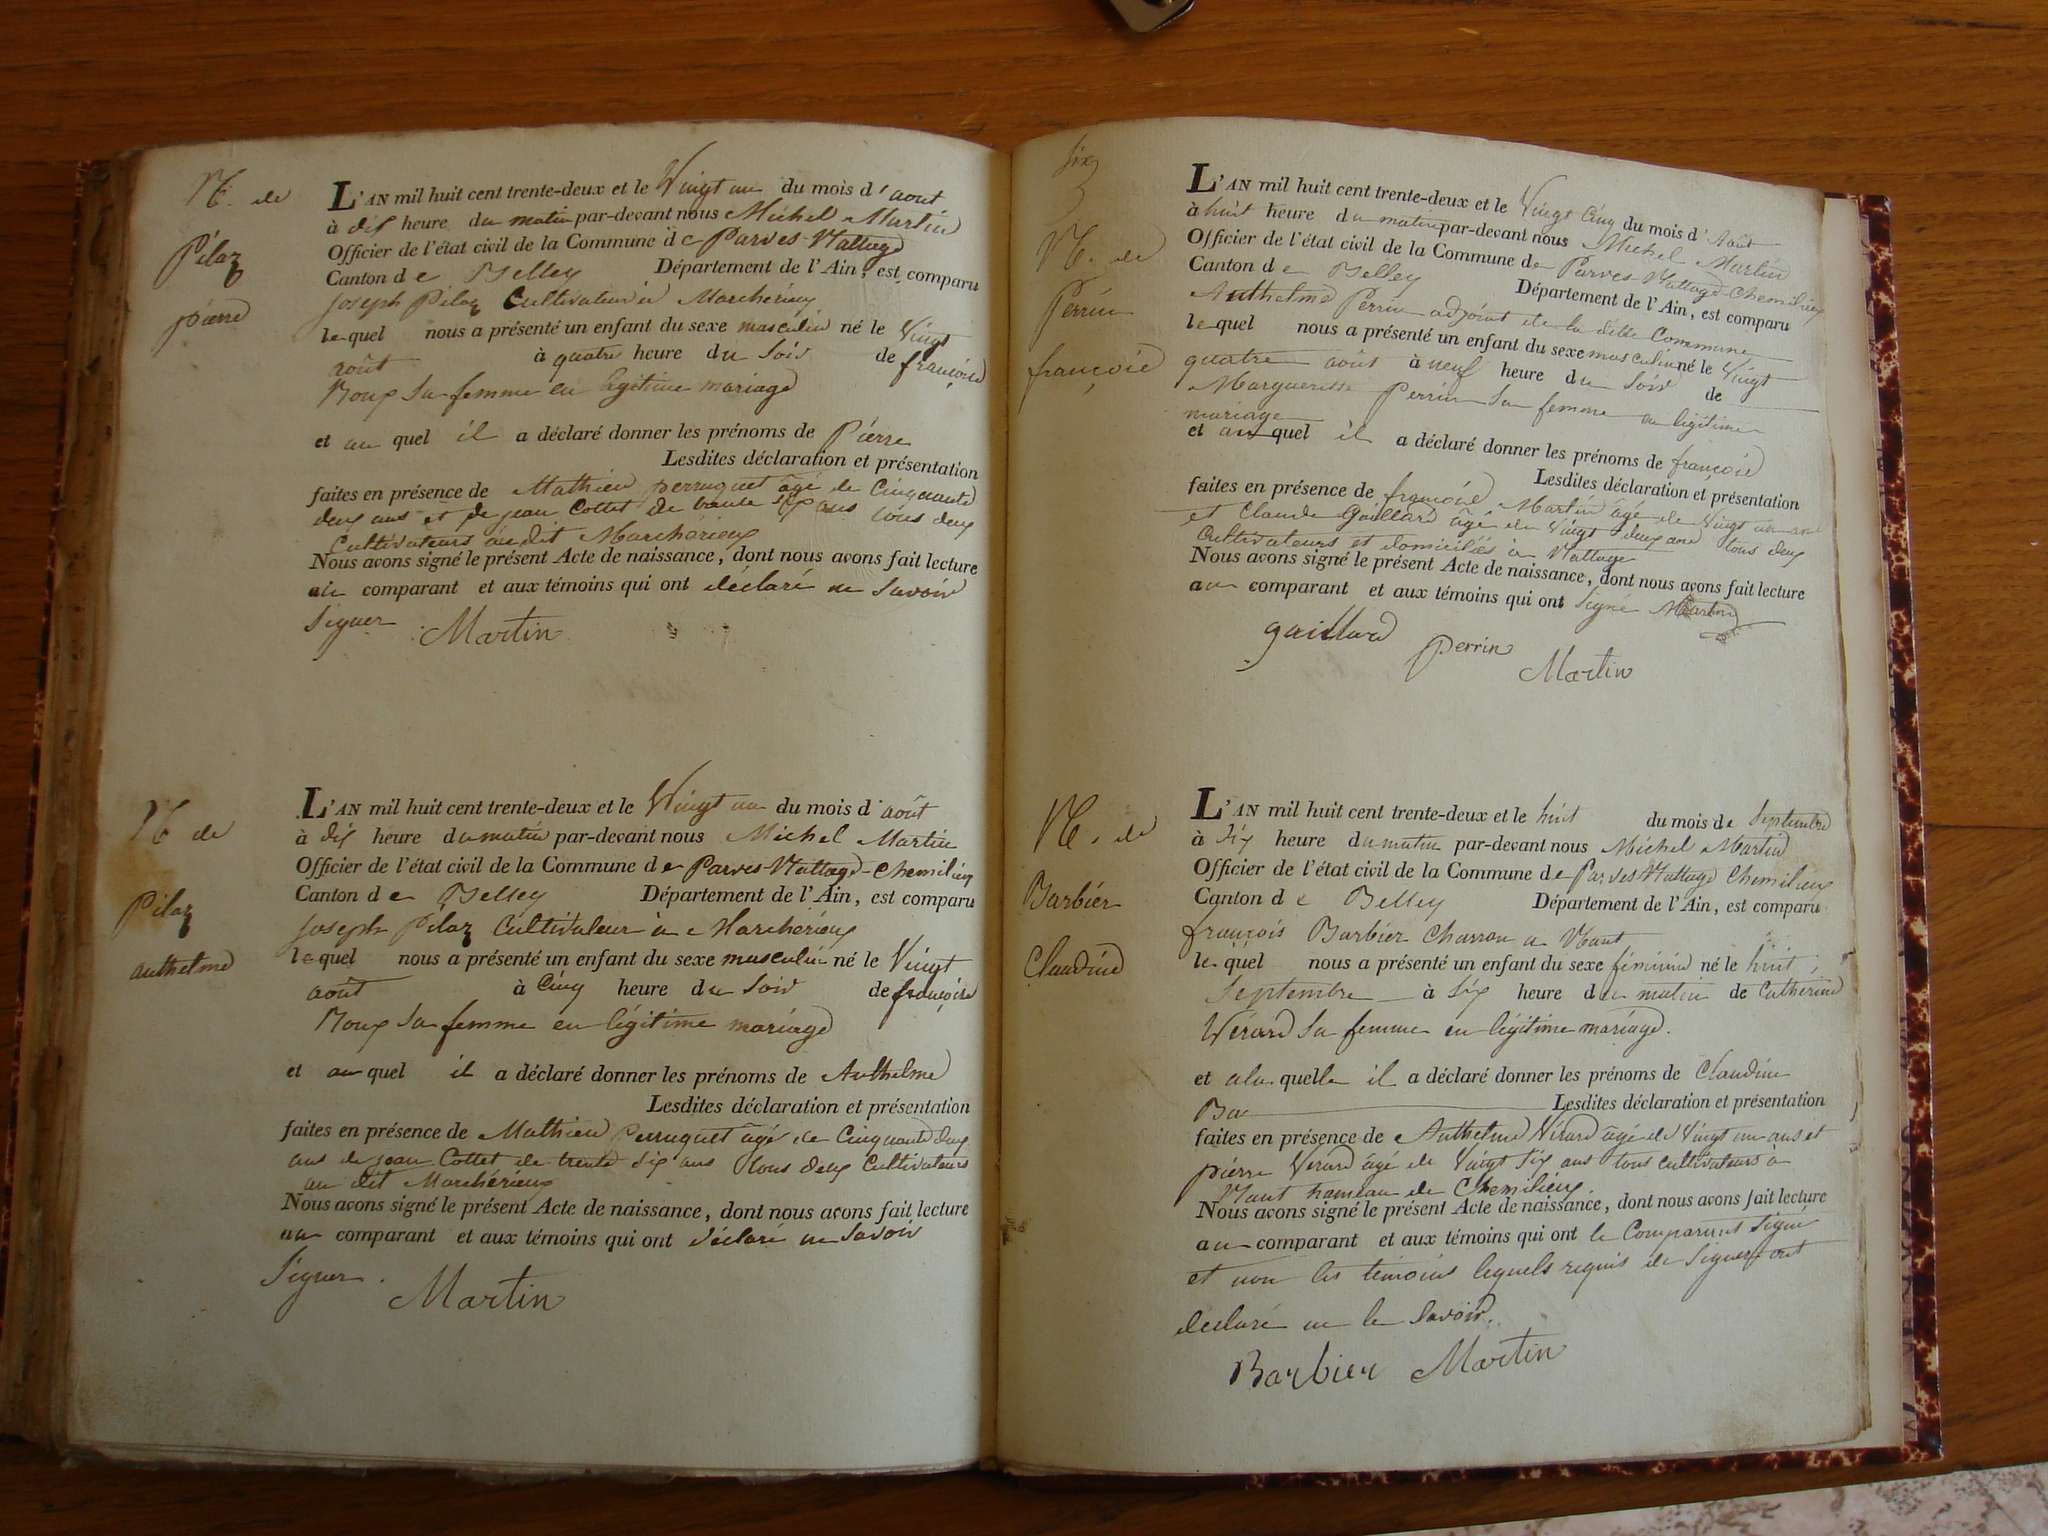 N. de
Pilaz
pierre
L'AN mil huit cent trente-deux et le Vingt un du mois d'aout
à dix heure du matin par-devant nous Michel Martin
Officier de l'état civil de la Commune de Parves-Nattage
Canton de Belley Département de l'Ain, est comparu
joseph Pilaz Cultivateur à Marchérieux
lequel nous a présenté un enfant du sexe masculin né le Vingt
août à quatre heure du Soir de françoise
Roux Sa femme en légitime mariage
et au quel il a déclaré donner les prénoms de Pierre
Lesdites déclaration et présentation
faites en présence de Mathieu perruquet âgé de Cinquante
deux ans et de jean Cottet de trente Six ans tous deux
Cultivateurs audit Marchérieux
Nous avons signé le présent Acte de naissance, dont nous avons fait lecture
au comparant et aux témoins qui ont déclaré ne Savoir
Signer Martin
N. de
Pilaz
anthelme
L'AN mil huit cent trente-deux et le Vingt un du mois d'août
à dix heure du matin par-devant nous Michel Martin
Officier de l'état civil de la Commune de Parves-Nattage-Chemilieu
Canton de Belley Département de l'Ain, est comparu
joseph Pilaz Cultivateur à Marchérieux
lequel nous a présenté un enfant du sexe masculin né le Vingt
août à Cinq heure du Soir de françoise
Roux Sa femme en légitime mariage
et au quel il a déclaré donner les prénoms de Anthelme
Lesdites déclaration et présentation
faites en présence de Mathieu Perruquet âgé de Cinquante deux
ans de jean Cottet de trente Six ans tous deux Cultivateurs
au dit Marchérieux
Nous avons signé le présent Acte de naissance, dont nous avons fait lecture
au comparant et aux témoins qui ont déclaré ne Savoir
Signer. Martin
Six
N. de
Perrin
françois
L'AN mil huit cent trente-deux et le Vingt Cinq du mois d'Août
à huit heure du matin par-devant nous Michel Martin
Officier de l'état civil de la Commune de Parves-Nattage-Chemilieu
Canton de Belley Département de l'Ain, est comparu
Anthelme Perrin adjoint de la ditte Commune
lequel nous a présenté un enfant du sexe masculin né le Vingt
quatre août à neuf heure du Soir de
Marguerite Perrin Sa femme en légitime
mariage
et au quel il a déclaré donner les prénoms de françois
Lesdites déclaration et présentation
faites en présence de françois Martin âgé de Vingt un ans
et Claude Gaillard âgé de Vingt deux ans tous deux
Cultivateurs et domiciliés à Nattage
Nous avons signé le présent Acte de naissance, dont nous avons fait lecture
au comparant et aux témoins qui ont Signé Martin
gaillard perrin
Martin
N. de
Barbier
Claudine
L'AN mil huit cent trente-deux et le huit du mois de Septembre
à Six heure du matin par-devant nous Michel Martin
Officier de l'état civil de la Commune de Parves Nattage Chemilieu
Canton de Belley Département de l'Ain, est comparu
françois Barbier Charron a Nant
lequel nous a présenté un enfant du sexe féminin né le huit
Septembre à Six heure du matin de Catherine
Vérard Sa femme en légitime mariage.
et a la quelle il a déclaré donner les prénoms de Claudine
Ba Lesdites déclaration et présentation
faites en présence de Anthelme Vérard âgé de Vingt un ans et
pierre Verard âgé de Vingt Six ans tous cultivateurs à
Nant hameau de Chemilieu
Nous avons signé le présent Acte de naissance, dont nous avons fait lecture
au comparant et aux témoins qui ont le Comparant Signé
et non les témoins lequels requis de Signer ont
déclaré ne le Savoir.
Barbier Martin